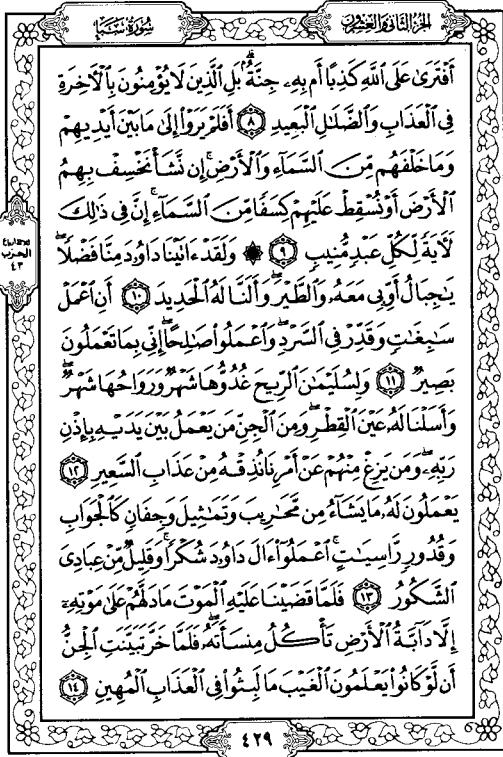 الجزء الثاني والعشرون
سورة سبإ
أَفْتَرَىٰ عَلَى ٱللَّهِ كَذِبًا أَم بِهِۦ جِنَّةٌۢ ۗ بَلِ ٱلَّذِينَ لَا يُؤْمِنُونَ بِٱلْءَاخِرَةِ
فِى ٱلْعَذَابِ وَٱلضَّلَٰلِ ٱلْبَعِيدِ ٨ أَفَلَمْ يَرَوْا۟ إِلَىٰ مَا بَيْنَ أَيْدِيهِمْ
وَمَا خَلْفَهُم مِّنَ ٱلسَّمَآءِ وَٱلْأَرْضِ ۚ إِن نَّشَأْ نَخْسِفْ بِهِمُ
ٱلْأَرْضَ أَوْ نُسْقِطْ عَلَيْهِمْ كِسَفًا مِّنَ ٱلسَّمَآءِ ۚ إِنَّ فِى ذَٰلِكَ
لَءَايَةً لِّكُلِّ عَبْدٍ مُّنِيبٍ ٩ ۞ وَلَقَدْ ءَاتَيْنَا دَاوُۥدَ مِنَّا فَضْلًا ۖ
يَٰجِبَالُ أَوِّبِى مَعَهُۥ وَٱلطَّيْرَ ۖ وَأَلَنَّا لَهُ ٱلْحَدِيدَ ١٠ أَنِ ٱعْمَلْ
سَٰبِغَٰتٍ وَقَدِّرْ فِى ٱلسَّرْدِ ۖ وَٱعْمَلُوا۟ صَٰلِحًا ۖ إِنِّى بِمَا تَعْمَلُونَ
بَصِيرٌ ١١ وَلِسُلَيْمَٰنَ ٱلرِّيحَ غُدُوُّهَا شَهْرٌ وَرَوَاحُهَا شَهْرٌ ۖ
وَأَسَلْنَا لَهُۥ عَيْنَ ٱلْقِطْرِ ۖ وَمِنَ ٱلْجِنِّ مَن يَعْمَلُ بَيْنَ يَدَيْهِ بِإِذْنِ
رَبِّهِۦ ۖ وَمَن يَزِغْ مِنْهُمْ عَنْ أَمْرِنَا نُذِقْهُ مِنْ عَذَابِ ٱلسَّعِيرِ ١٢
يَعْمَلُونَ لَهُۥ مَا يَشَآءُ مِن مَّحَٰرِيبَ وَتَمَٰثِيلَ وَجِفَانٍ كَٱلْجَوَابِ
وَقُدُورٍ رَّاسِيَٰتٍ ۚ ٱعْمَلُوٓا۟ ءَالَ دَاوُۥدَ شُكْرًا ۚ وَقَلِيلٌ مِّنْ عِبَادِىَ
ٱلشَّكُورُ ١٣ فَلَمَّا قَضَيْنَا عَلَيْهِ ٱلْمَوْتَ مَا دَلَّهُمْ عَلَىٰ مَوْتِهِۦٓ
إِلَّا دَآبَّةُ ٱلْأَرْضِ تَأْكُلُ مِنسَأَتَهُۥ ۖ فَلَمَّا خَرَّ تَبَيَّنَتِ ٱلْجِنُّ
أَن لَّوْ كَانُوا۟ يَعْلَمُونَ ٱلْغَيْبَ مَا لَبِثُوا۟ فِى ٱلْعَذَابِ ٱلْمُهِينِ ١٤
الحزب
٤٣
٤٢٩